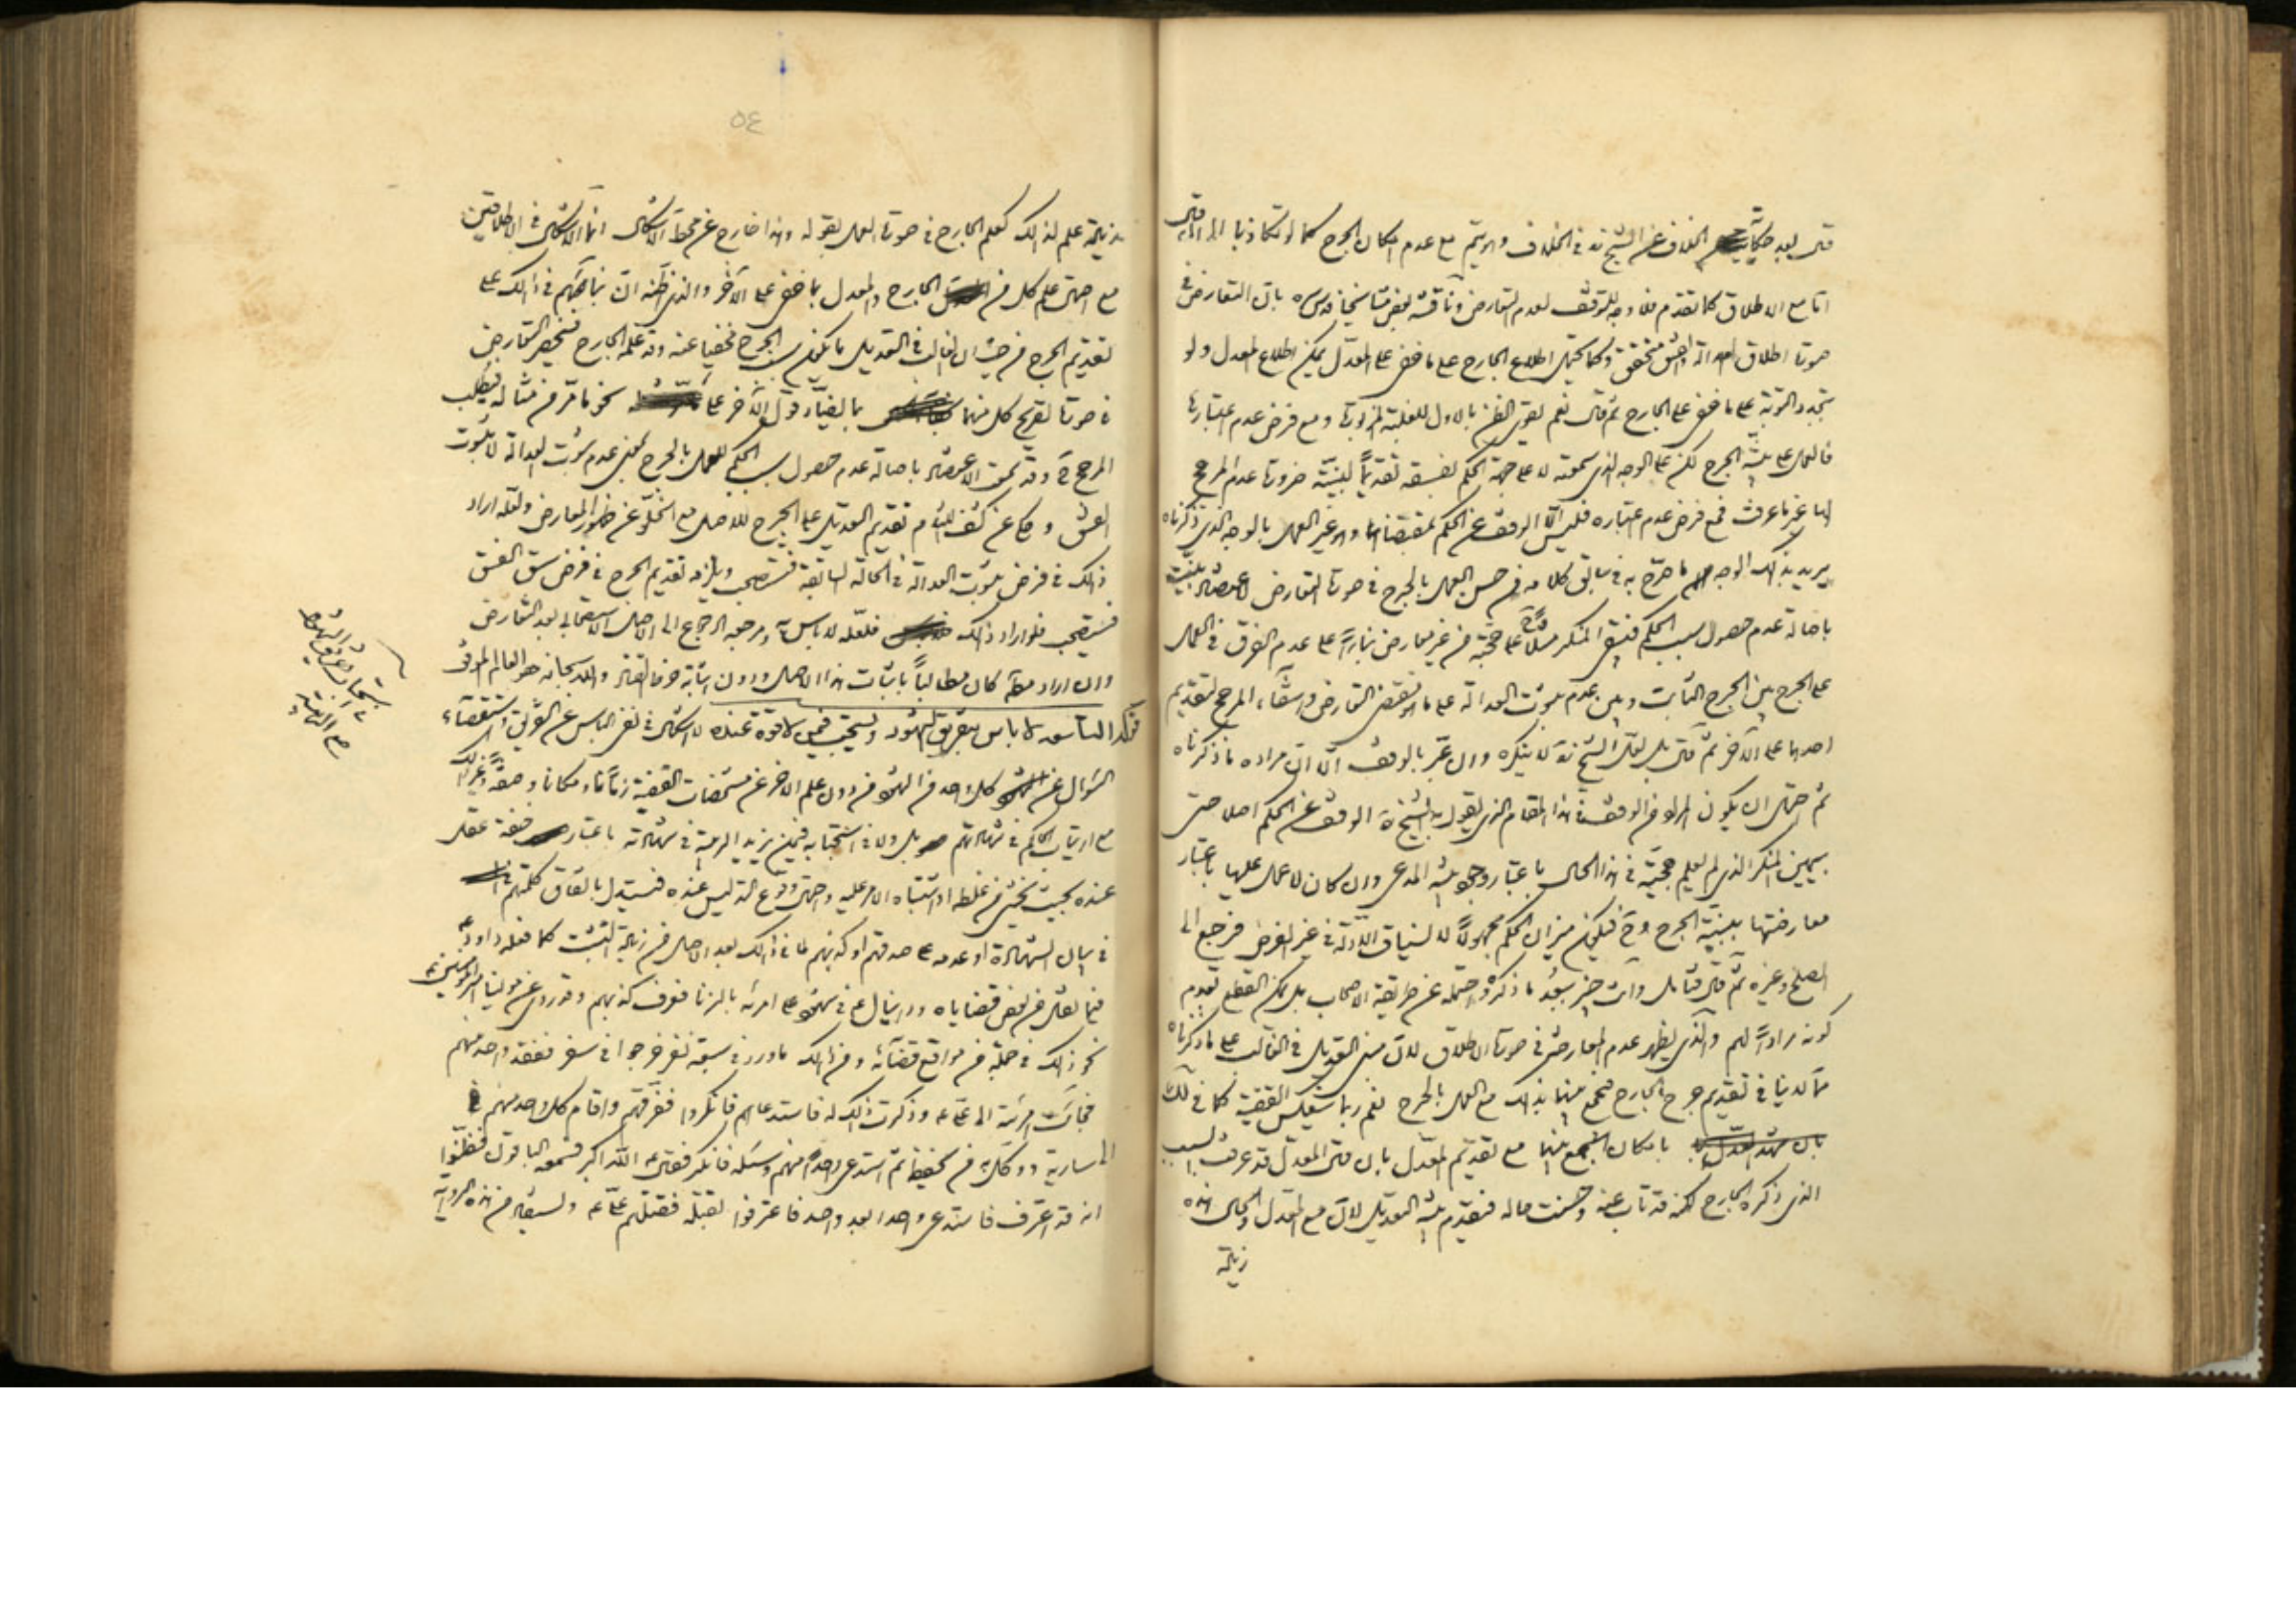 قال بعد حكاية الخلاف عن الشيخ ره في الخلاف وهو يتم مع عدم امكان الجرح كما لو تكاذبا الى ان قال
اما مع الاطلاق كما تقدم فلا وجه للتوقف لعدم التعارض وناقشه بعض مشايخنا قدس سره بان التعارض في
صورة اطلاق العدالة والفسق متحقق وكما يحتمل اطلاع الجارح على ما خفي على المعدل يمكن اطلاع المعدل ولو
بتجدد التوبة على ما خفي على الجارح ثم قال نعم يقوى الظن بالاول للغلبة المزبورة ومع فرض عدم اعتبارها
فالعمل على بينة الجرح لكن على الوجه الذي سمعته لا على جهة الحكم بفسقه تقديما لبينته ضرورة عدم المرجح
لها غير ما عرفت فمع فرض عدم اعتباره فليس الا الوقف عن الحكم بمقتضاهما وهو غير العمل بالوجه الذي ذكرناه
يريد بذلك الوجه ما صرح به في سابق كلامه من حسن العمل بالجرح في صورة التعارض لاعتضاد بينته
باصالة عدم حصول سبب الحكم فيبقى المنكر مثلا على حجته من غير معارض بناء على عدم الفرق في العمل
على الجرح بين الجرح الثابت وبين عدم ثبوت العدالة على ما هو مقتضى التعارض وانتفاء المرجح لتقديم
احدهما على الآخر ثم قال بل لعل الشيخ ره لا ينكره وان عبر بالوقف الا ان مراده ما ذكرناه
ثم احتمل ان يكون المراد من الوقف في هذا المقام الذي يقول به الشيخ ره الوقف عن الحكم اصلا حتى
بيمين المنكر الذي لم يعلم حجيته في هذا الحال باعتبار وجود بينة المدعي وان كان لا عمل عليها باعتبار
معارضتها ببينة الجرح وح فيكون ميزان الحكم مجهولا لانسياق الادلة في غير الفرض فيرجع الى
الصلح وغيره ثم قال فتامل وانت خبير ببعد ما ذكره واحتمله عن طريقة الاصحاب بل يمكن القطع بعدم
كونه مرادا لهم والذي يظهر عدم المعارضة في صورة الاطلاق لان مبنى التعديل في الغالب على ما ذكرناه
مما لدينا في تقديم جرح الجارح فيجمع بينهما بذلك مع العمل بالجرح نعم ربما ينعكس القضية كما في تلك
بامكان الجمع بينهما مع تقديم المعدل بان قال المعدل قد عرفت السبب
الذي ذكره الجارح لكنه قد تاب عنه وحسنت حاله فيقدم بينة التعديل لان مع المعدل والحال هذه
زيادة
٥٤
زيادة علم لذلك كعلم الجارح في صورة العمل بقوله وهذا خارج عن محط الاشكال انما الاشكال في الاطلاقين
مع احتمال علم كل من الجارح والمعدل بما خفي على الآخر والذي اظنه ان بنائهم في ذلك على
تقديم الجرح من حيث ان الغالب في التعديل ما يكون سبب الجرح مخفيا عنه وقد علمه الجارح فينحصر التعارض
في صورة تصريح كل منهما بما ينافي قول الآخر على نحو ما مر من مثاله فيطلب
المرجح ح وقد سمعت الاعتضاد باصالة عدم حصول سبب الحكم للعمل بالجرح بمعنى عدم ثبوت العدالة لا ثبوت
الفسق وحكي عن كشف اللثام تقديم التعديل على الجرح للاصل مع الخلو عن ظهور المعارض ولعله اراد
ذلك في فرض ثبوت العدالة في الحالة السابقة فتستصحب ويلزمه تقديم الجرح في فرض سبق الفسق
فيستصحب فلو اراد ذلك فلعله لا باس به ومرجعه الرجوع الى الاصل الاستصحابي بعد التعارض
وان اراد مطلقا كان مطالبا باثبات هذا الاصل ودون اثباته خرط القتاد والله سبحانه هو العالم الموفق
قوله التاسعه لا باس بتفريق الشهود ويستحب فيمن لا قوة عنده لا اشكال في نفي الباس عن التفريق واستقصاء
السؤال عن كل واحد من الشهود من دون علم الاخر عن مشخصات القضية زمانا ومكانا وصفة وغير ذلك
مع ارتياب الحاكم في شهادتهم بل ولا في استحبابه فيمن يريد الريبة في شهادته باعتبار ضعف عقل
عنده بحيث يخشى من غلطه او اشتباه الامر عليه واحتمال وقوع التدليس عنده فيستدل باتفاق كلمتهم
في بيان الشهادة او عدمه على صدقهم او كذبهم لما في ذلك بعد الاصل من زيادة التثبت كما فعله داود ع
فيما نقل من بعض قضاياه ودانيال ع في شهود على امرئة بالزنا فعرف كذبهم وقد روي عن مولينا امير المؤمنين ع
نحو ذلك في جملة من مواقع قضائه ومن ذلك ما ورد في سبعة نفر خرجوا في سفر ففقد واحد منهم
فجائت امرئته الى علي ع وذكرت ذلك له فاستدعاهم فانكروا ففرقهم واقام كل واحد منهم
الى سارية ووكل به من يحفظه ثم استدعى واحدا منهم وسئله فانكر فقال ع الله اكبر فسمعه الباقون فظنوا
انه قد اعترف فاستدعى واحدا بعد واحد فاعترفوا بقتله فقتلهم علي ع ولسيفاد من هذه الرواية